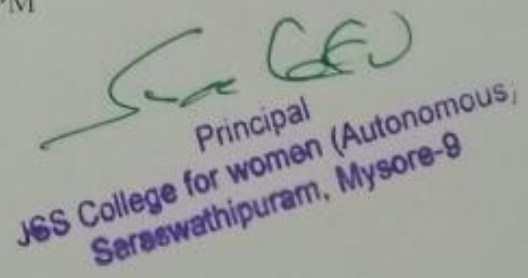 PM
Principal
JSS College for women (Autonomous)
Saraswathipuram, Mysore-9